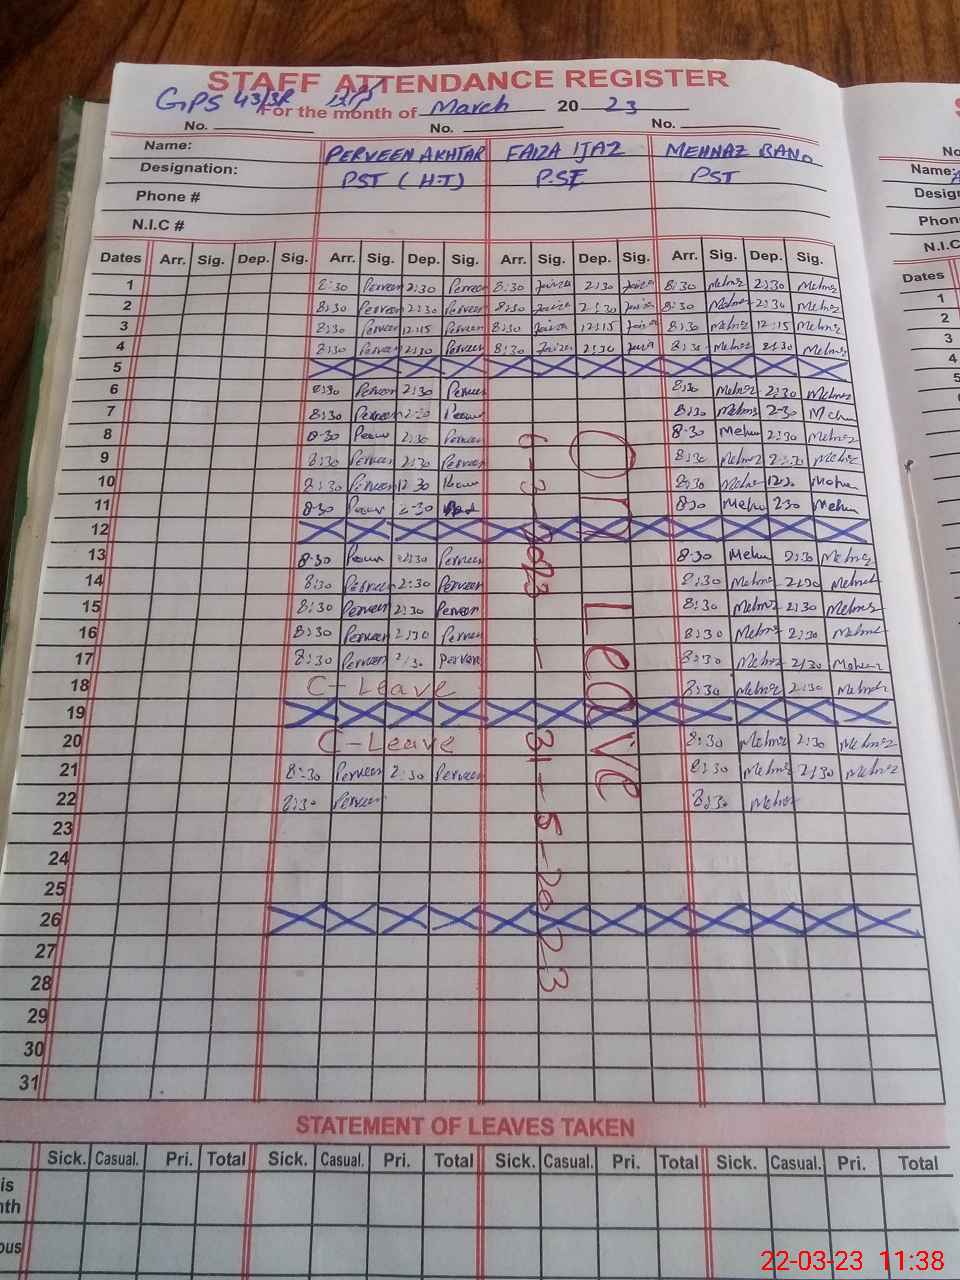 STAFF ATTENDANCE REGISTER
GPS 43/3R
For the month of March 20 23
No. No. No.
Name: PERVEEN AKHTAR FAIZA IJAZ MEHNAZ BANO
Designation: PST (H.T) P.S.T PST
Phone #
N.I.C #
Dates Arr. Sig. Dep. Sig. Arr. Sig. Dep. Sig. Arr. Sig. Dep. Sig. Arr. Sig. Dep. Sig.
1 8:30 Perveen 2:30 Perveen 8:30 Faiza 2:30 Faiza 8:30 Mehnaz 2:30 Mehnaz
2 8:30 Perveen 2:30 Perveen 8:30 Faiza 2:30 Faiza 8:30 Mehnaz 2:30 Mehnaz
3 8:30 Perveen 12:15 Perveen 8:30 Faiza 12:15 Faiza 8:30 Mehnaz 12:15 Mehnaz
4 8:30 Perveen 2:30 Perveen 8:30 Faiza 2:30 Faiza 8:30 Mehnaz 2:30 Mehnaz
5
6 8:30 Perveen 2:30 Perveen 8:30 Mehnaz 2:30 Mehnaz
7 8:30 Perveen 2:30 8:30 Mehnaz 2:30
8 8:30 2:30 Perveen 8:30 2:30 Mehnaz
9 8:30 Perveen 2:30 Perveen 8:30 Mehnaz 2:30 Mehnaz
10 8:30 Perveen 12:30 8:30 12:30
11 8:30 2:30 8:30 2:30
12
13 8:30 2:30 Perveen 8:30 2:30 Mehnaz
14 8:30 Perveen 2:30 Perveen 8:30 Mehnaz 2:30 Mehnaz
15 8:30 Perveen 2:30 Perveen 8:30 Mehnaz 2:30 Mehnaz
16 8:30 Perveen 2:30 Perveen 8:30 Mehnaz 2:30 Mehnaz
17 8:30 Perveen 2:30 Perveen 8:30 Mehnaz 2:30 Mehnaz
18 C-Leave 8:30 Mehnaz 2:30 Mehnaz
19
20 C-Leave 8:30 Mehnaz 2:30 Mehnaz
21 8:30 Perveen 2:30 Perveen 8:30 Mehnaz 2:30 Mehnaz
22 8:30 Perveen 8:30 Mehnaz
23
24
25
26
27
28
29
30
31
On Leave
6-3-2023 — 31-5-2023
STATEMENT OF LEAVES TAKEN
Sick. Casual. Pri. Total Sick. Casual. Pri. Total Sick. Casual. Pri. Total Sick. Casual. Pri. Total
No
Name:
Desig
Phon
N.I.C
Dates
1
2
3
4
5
22-03-23 11:38